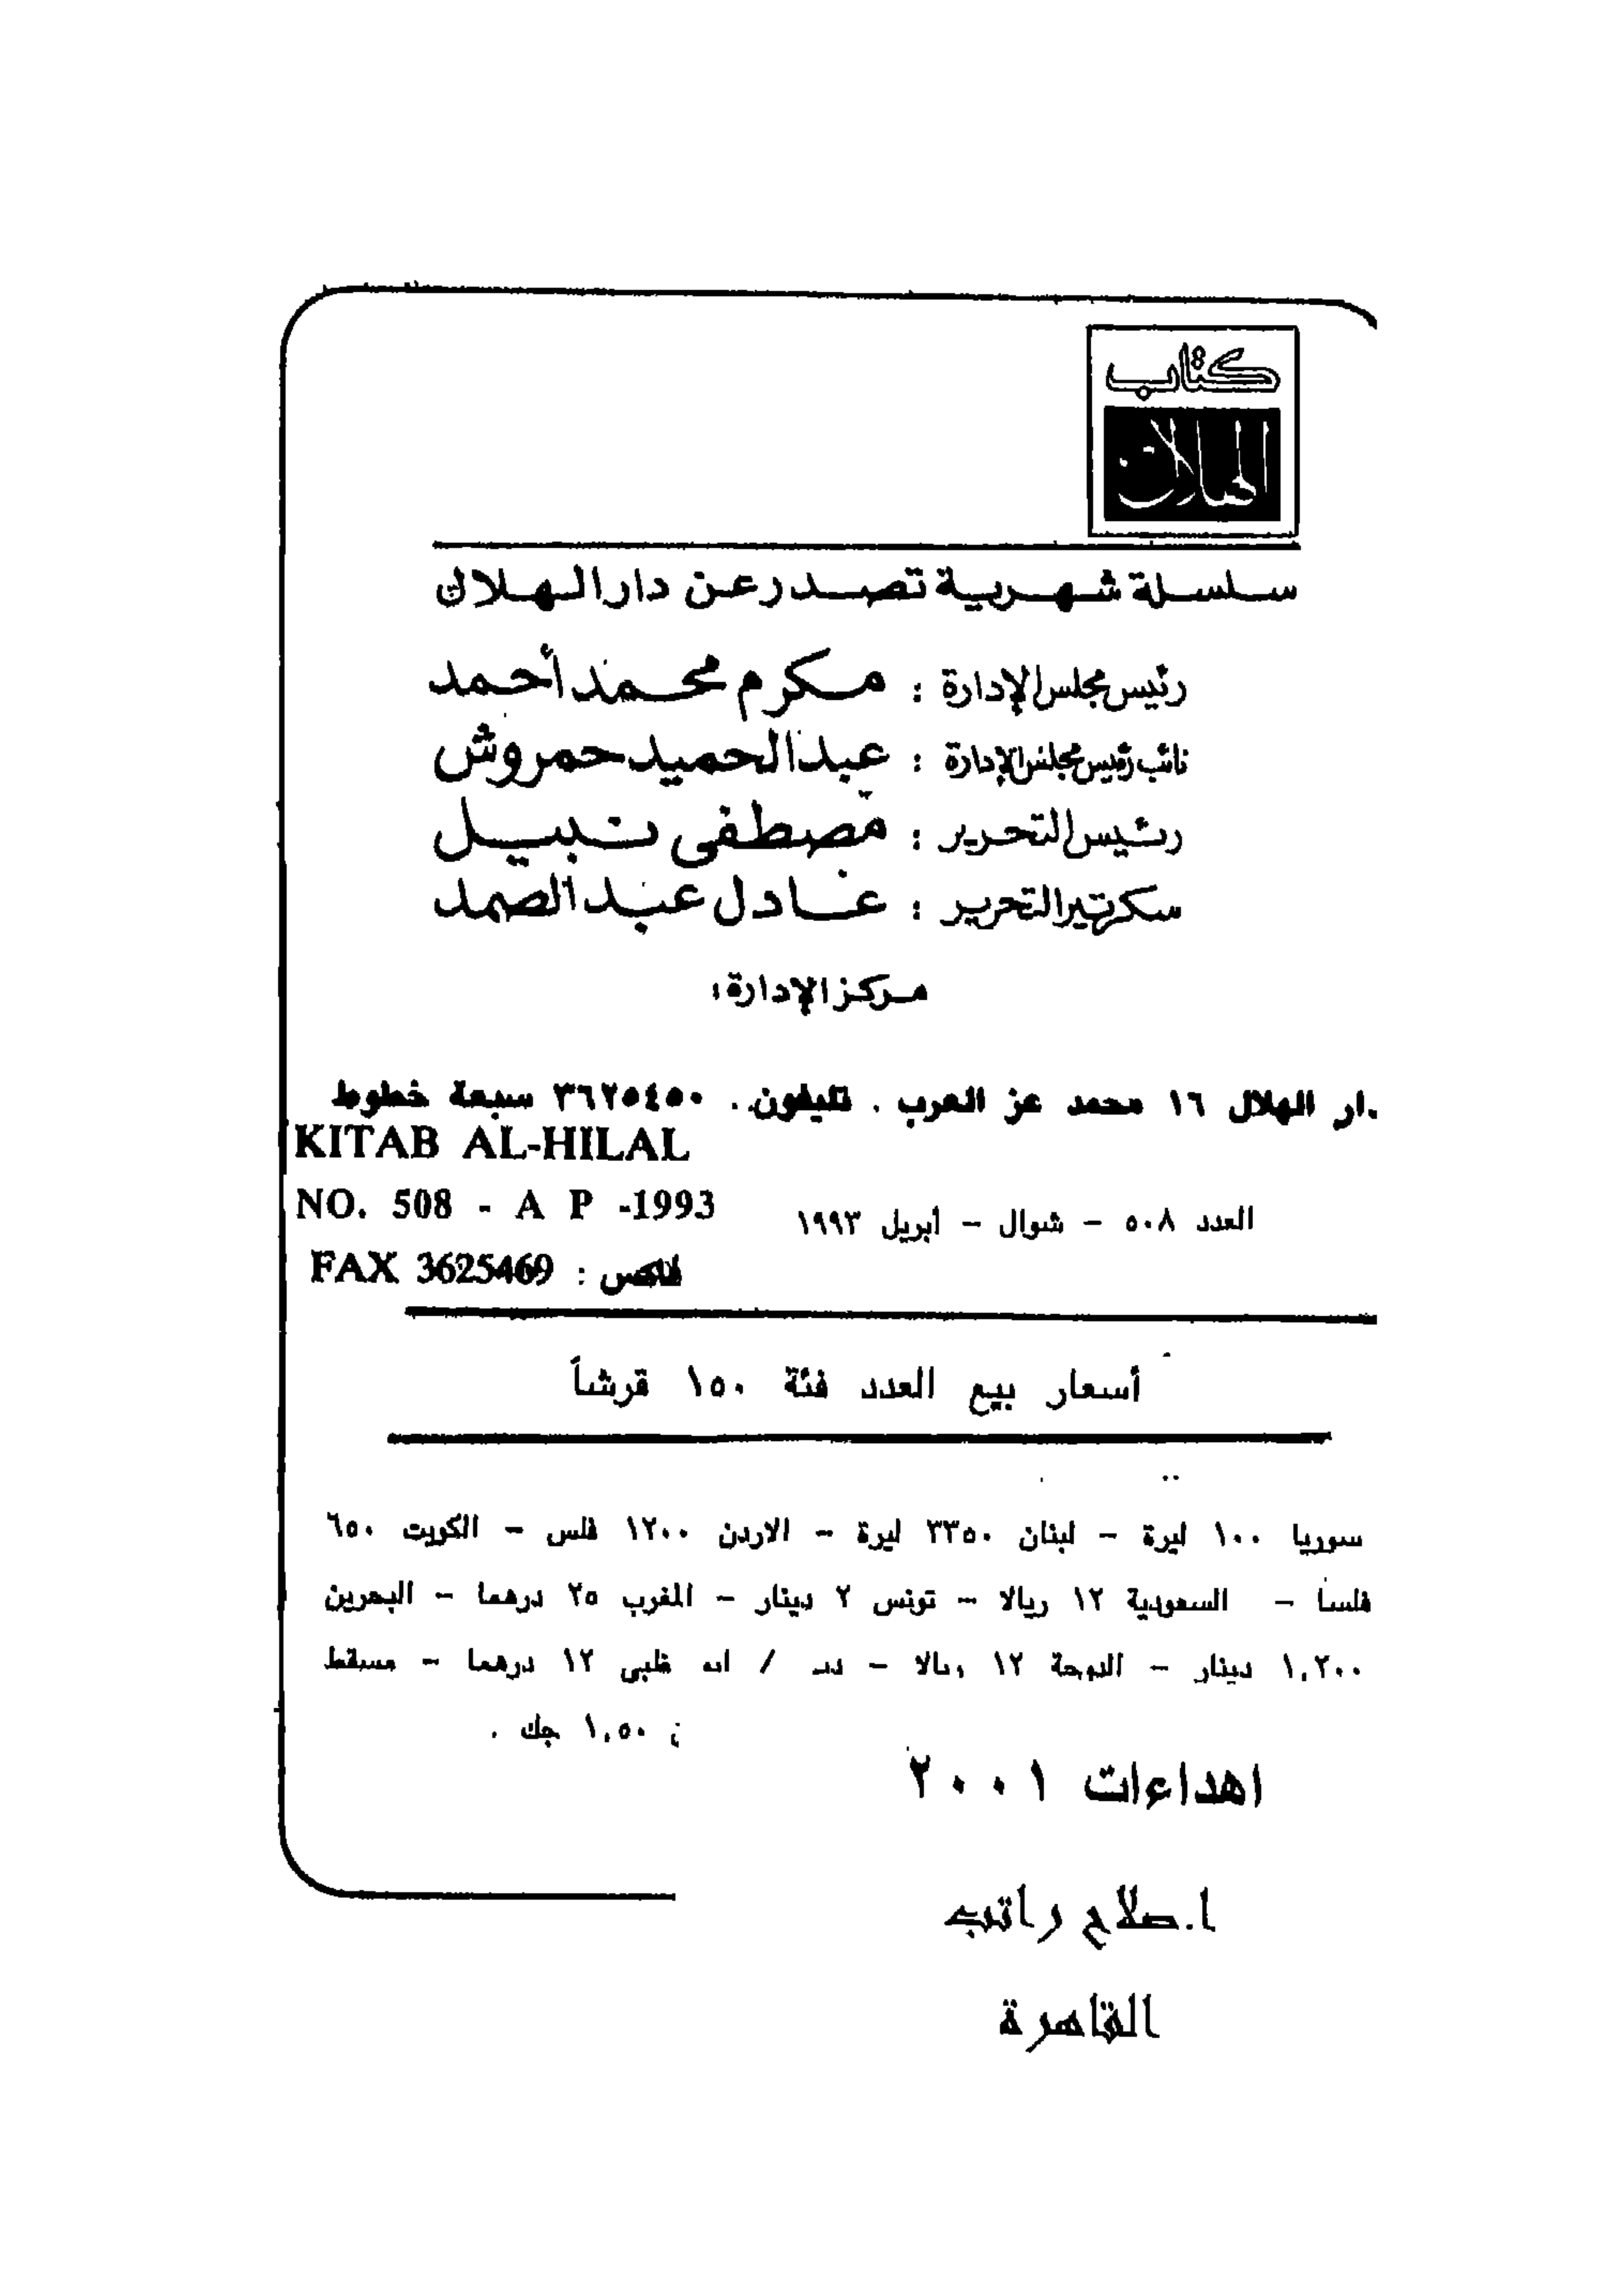 كتاب
الهلال
سلسلة شهرية تصدر عن دار الهلال
رئيس مجلس الإدارة : مكرم محمد أحمد
نائب رئيس مجلس الإدارة : عبد الحميد حمروش
رئيس التحرير : مصطفى نبيل
سكرتير التحرير : عادل عبد الصمد
مركز الإدارة :
ار الهلال ١٦ محمد عز العرب . تليفون . ٣٦٢٥٤٥٠ سبعة خطوط
KITAB AL-HILAL
العدد ٥٠٨ - شوال - أبريل ١٩٩٣ NO. 508 - A P -1993
فاكس : FAX 3625469
أسعار بيع العدد فئة ١٥٠ قرشاً
سوريا ١٠٠ ليرة - لبنان ٣٣٥٠ ليرة - الاردن ١٢٠٠ فلس - الكويت ٦٥٠
فلسا - السعودية ١٢ ريالا - تونس ٢ دينار - المغرب ٢٥ درهما - البحرين
١,٢٠٠ دينار - الدوحة ١٢ ريالا - / ظبى ١٢ درهما - مسقط
١,٥٠ جك .
اهداءات ٢٠٠١
ا.صلاح راتب
القاهرة